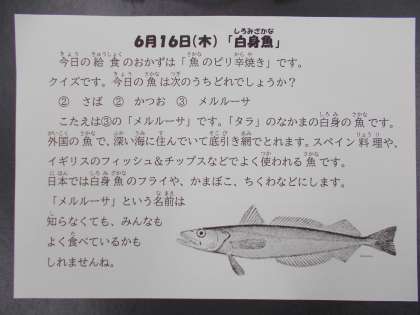 6月16日(木) 「白身魚」
今日の給食のおかずは「魚のピリ辛焼き」です。
クイズです。今日の魚は次のうちどれでしょうか?
② さば ② かつお ③ メルルーサ
こたえは③の「メルルーサ」です。「タラ」のなかまの白身の魚です。
外国の魚で、深い海に住んでいて底引き網でとれます。スペイン料理や、
イギリスのフィッシュ&チップスなどでよく使われる魚です。
日本では白身魚のフライや、かまぼこ、ちくわなどにします。
「メルルーサ」という名前は
知らなくても、みんなも
よく食べているかも
しれませんね。